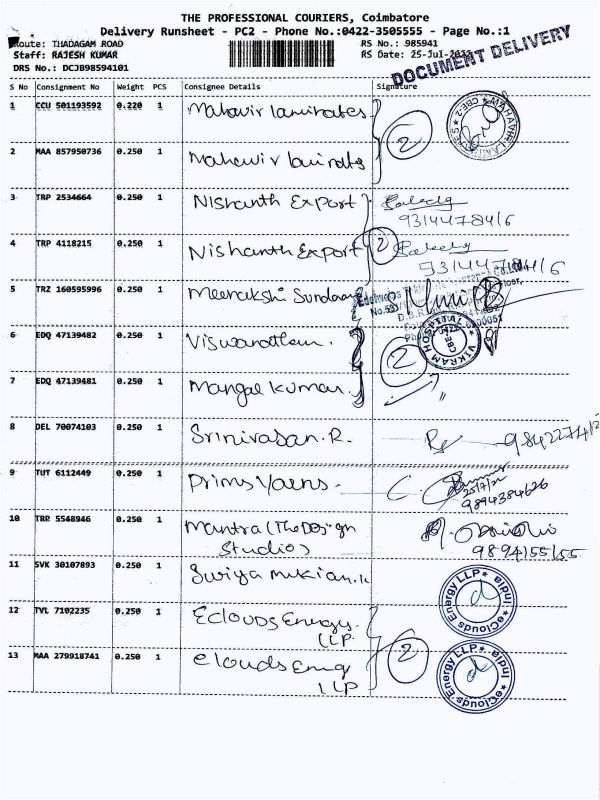 THE PROFESSIONAL COURIERS, Coimbatore
Delivery Runsheet - PC2 - Phone No.:0422-3505555 - Page No.:1
Route: THADAGAM ROAD
RS No.: 985941
Staff: RAJESH KUMAR
RS Date: 25-Jul-
DRS No.: DCJB98594101
DOCUMENT DELIVERY
S No Consignment No Weight PCS Consignee Details Signature
1 CCU 501193592 0.220 1 Mahavir laminates
2
2 MAA 857950736 0.250 1 Mahavir laminates
3 TRP 2534664 0.250 1 Nishanth Export
9314478416
4 TRP 4118215 0.250 1 Nishanth Export 2
9314478416
5 TRZ 160595996 0.250 1 Meenakshi Sundaram
6 EDQ 47139482 0.250 1 Viswanathan.
VIKRAM HOSPITAL
CBE
2
7 EDQ 47139481 0.250 1 Mangal Kumar.
8 DEL 70074103 0.250 1 Srinivasan.R.
9 TUT 6112449 0.250 1 Prims Yarns.
25/7/22
9894384626
10 TRP 5548946 0.250 1 Mantra (The Design
Studio)
9894155155
11 SVK 30107893 0.250 1 Suriya
eClouds Energy LLP * India *
12 TVL 7102235 0.250 1 Eclouds Energy.
LLP.
2
13 MAA 279918741 0.250 1 eclouds Energy
LLP
eClouds Energy LLP * India *